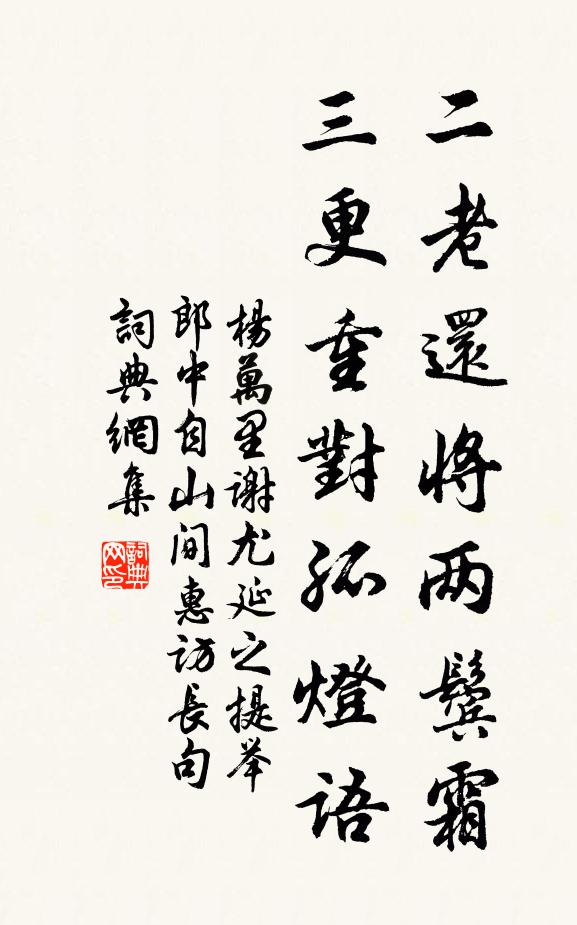 二老還將两鬓霜
三更重對孤燈語
楊萬里谢尤延之提举
郎中自山间惠访長句
詞典網集
詞典网印